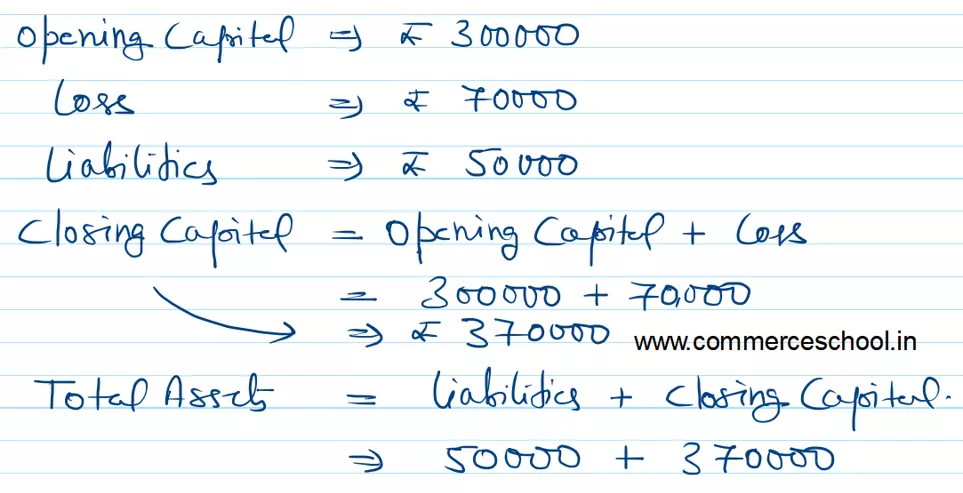 Opening Capital ⇒ ₹ 300000
Loss ⇒ ₹ 70000
Liabilities ⇒ ₹ 50000
Closing Capital = Opening Capital + Loss
= 300000 + 70,000
⇒ ₹ 370000 www.commerceschool.in
Total Assets = Liabilities + Closing Capital.
⇒ 50000 + 370000